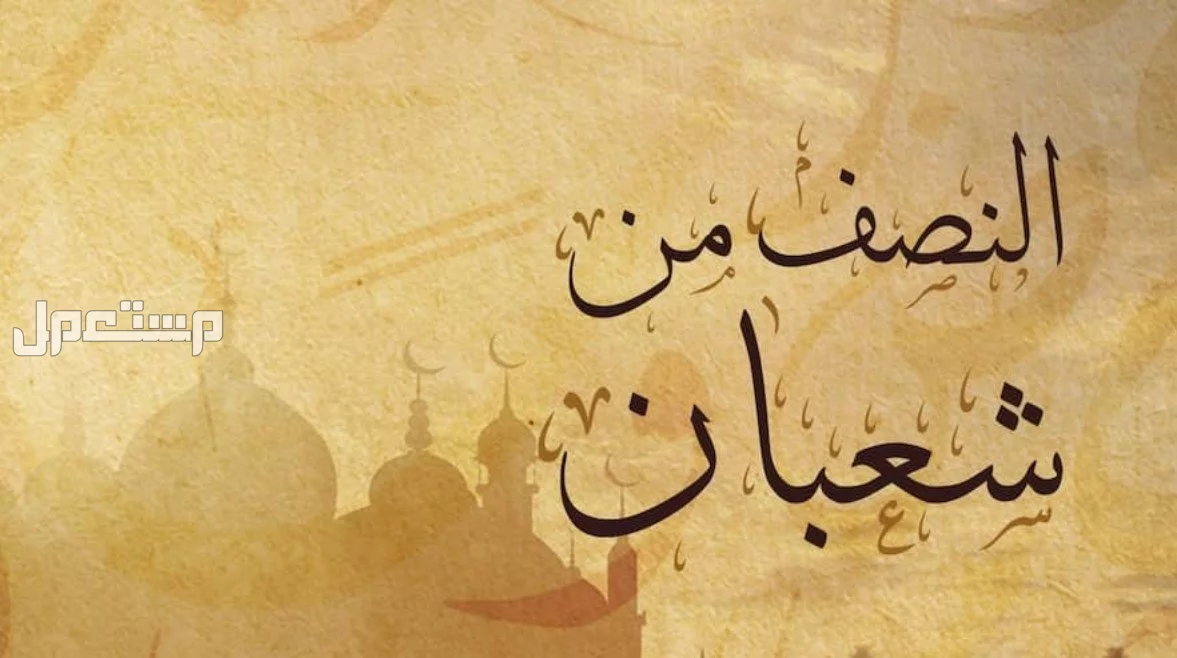 النصف من
شعبان
مستعمل